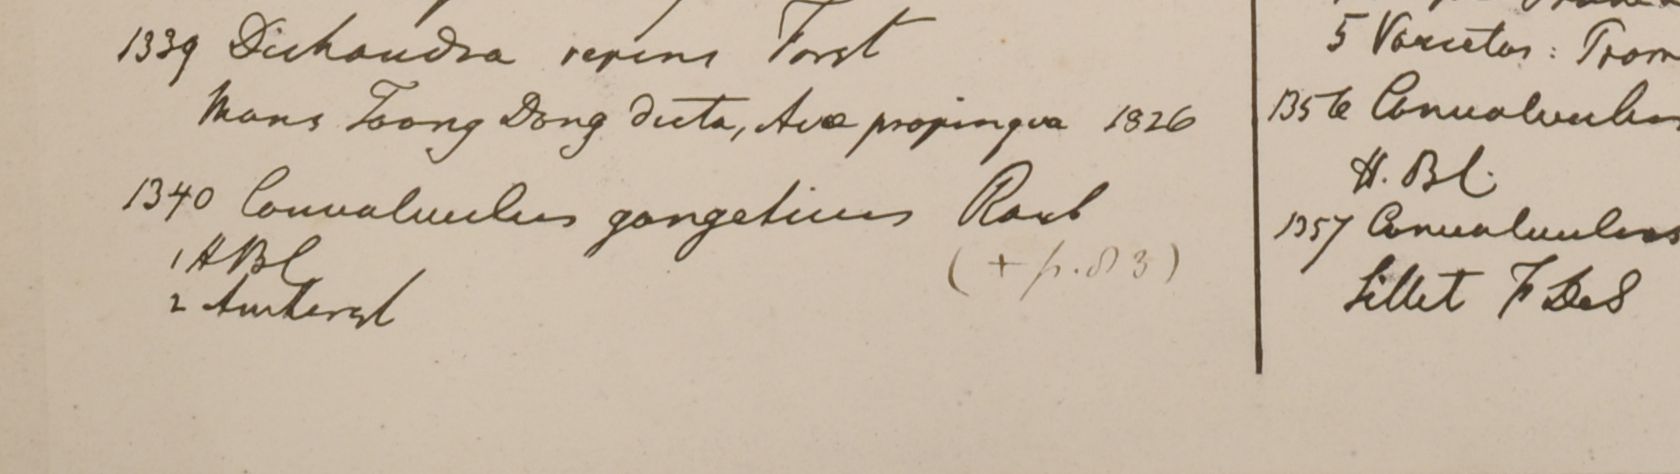 1339 Dichondra repens Forst
Mons Toong Dong dicta, Avæ propinqva 1826
1340 Convolvulus gangeticus Roxb
1 H Bl
2 Amherst
(+ p. 83)
5 Varietas: Trom
1356 Convolvulus
H. Bl.
1357 Convolvulus
Sillet F De S